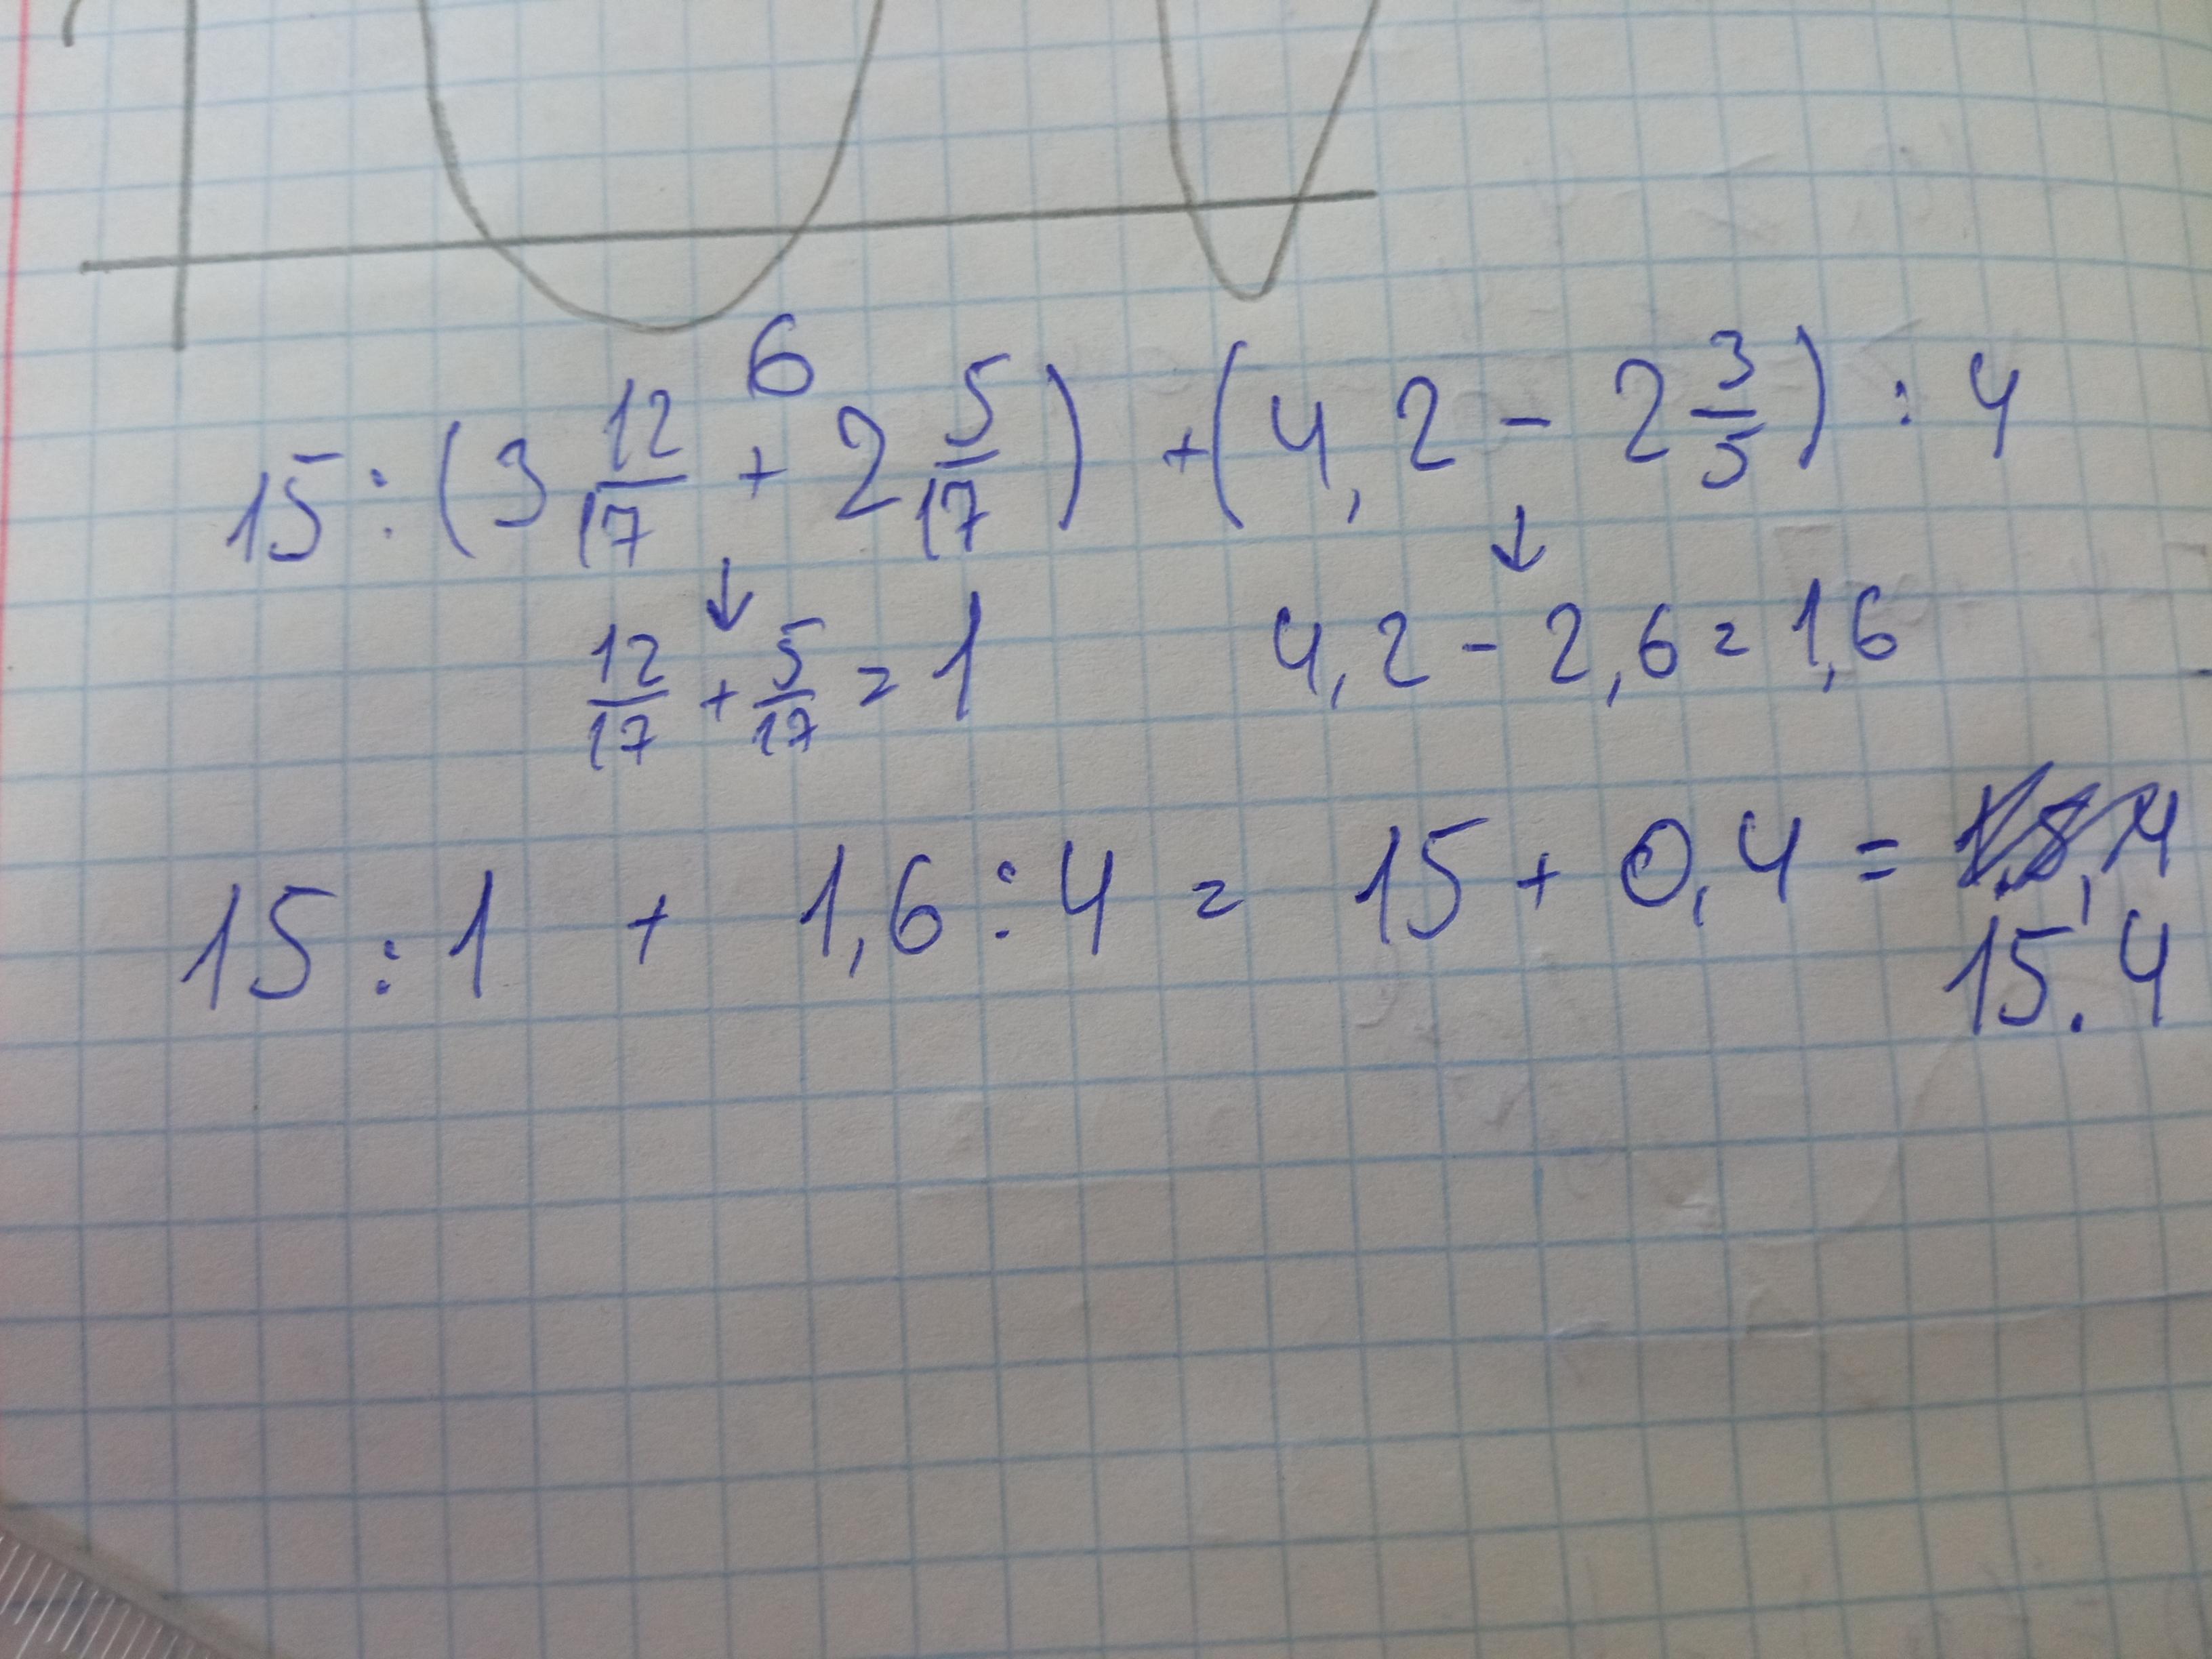 6
15 : (3 12/17 + 2 5/17) + (4,2 - 2 3/5) : 4
↓ ↓
12/17 + 5/17 = 1 4,2 - 2,6 = 1,6
15 : 1 + 1,6 : 4 = 15 + 0,4 =
15.4